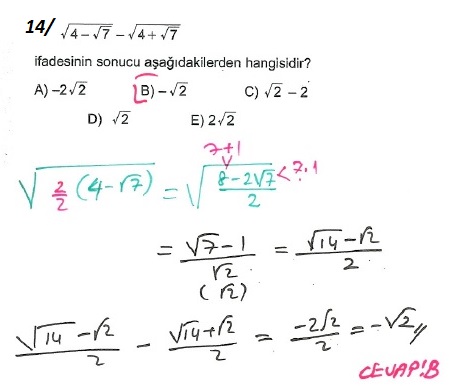 14/ √(4−√7) − √(4+√7)
ifadesinin sonucu aşağıdakilerden hangisidir?
A) −2√2 B) −√2 C) √2 − 2
D) √2 E) 2√2
7+1
√(2/2 (4−√7)) = √((8−2√7)/2) < 7.1
= (√7−1)/√2 = (√14−√2)/2
(√2)
(√14−√2)/2 − (√14+√2)/2 = −2√2/2 = −√2//
CEVAP!B